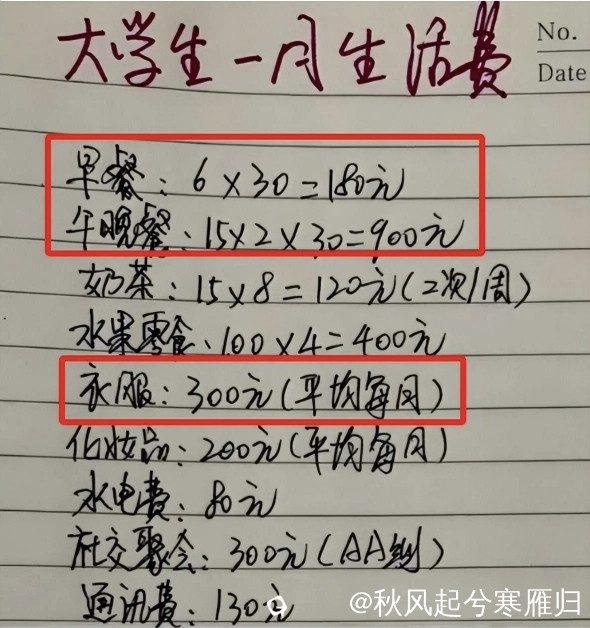 大学生一月生活费
No.
Date
早餐：6×30=180元
午晚餐：15×2×30=900元
奶茶：15×8=120元(2次/周)
水果零食：100×4=400元
衣服：300元(平均每月)
化妆品：200元(平均每月)
水电费：80元
社交聚会：300元(AA制)
通讯費：130元
@秋风起兮寒雁归